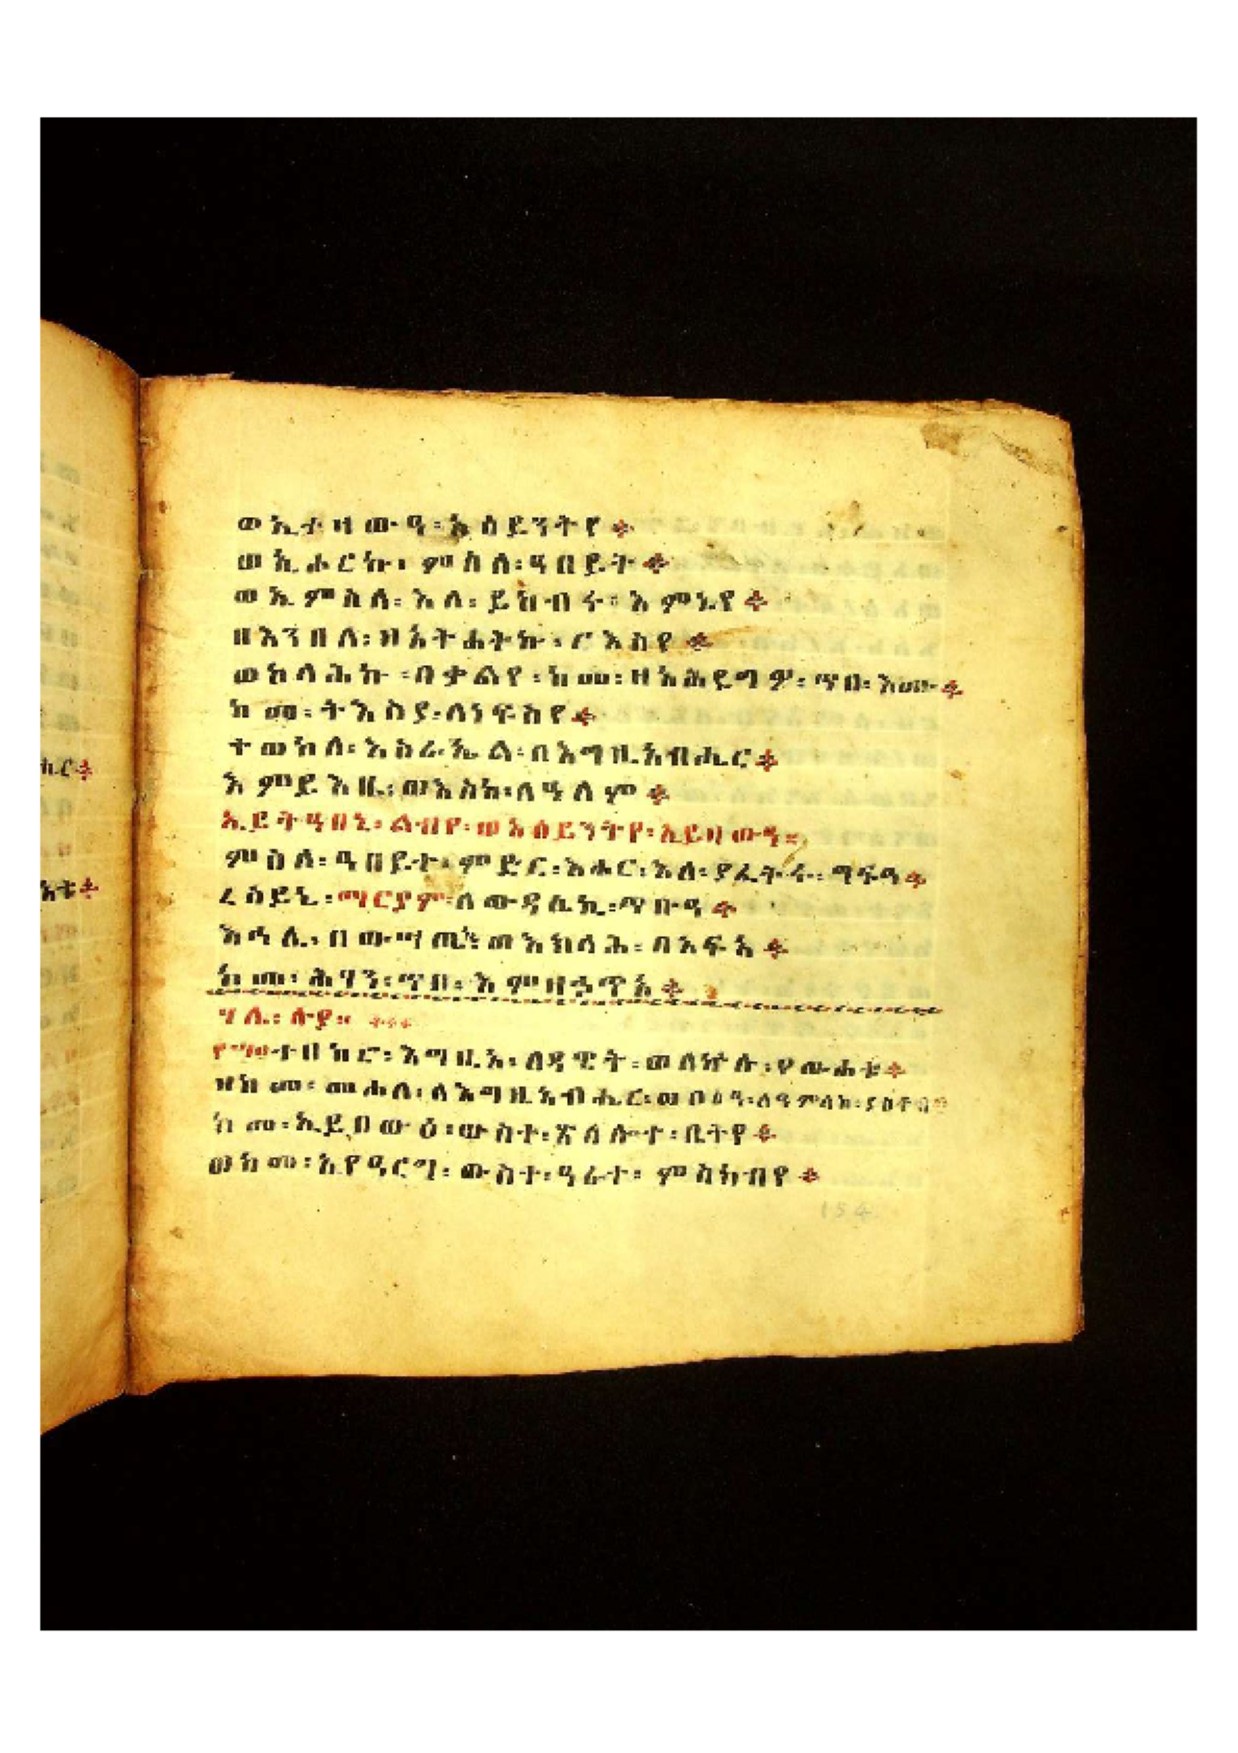 ሒር፨
አቱ፨
ወኢተዛውዓ፡አዕይንትየ፨
ወኢሖርኩ፡ምስለ፡ዓበይት፨
ወኢምስለ፡እለ፡ይከብሩ፡እምኔየ፨
ዘእንበለ፡ዘአትሐትኩ፡ርእስየ፨
ወከላሕኩ፡በቃልየ፡ከመ፡ዛአሕዩግዎ፡ጥበ፡እሙ፨
ከመ፡ትእስያ፡ለነፍስየ፨
ተወከለ፡እስራኤል፡በእግዚአብሔር፨
እምይእዜ፡ወእስከ፡ለዓለም፨
ኢይትዓበኒ፡ልብየ፡ወአዕይንትየ፡ኢይዛውዓ።
ምስለ፡ዓበይተ፡ምድር፡አሐር፡እለ፡ያፈትሩ፡ግፍዓ፨
ረስይኒ፡ማርያም፡ለውዳሴኪ፡ጥቡዓ፨
እዓሊ፡በውማጤ፡ወእክላሕ፡በአፍአ፨
ከመ፡ሕፃን፡ጥበ፡እምዘኃጥአ፨
ሃሌ፡ሉያ።
የማተዘከሮ፡እግዚኦ፡ለዳዊት፡ወለኵሉ፡የውሐቱ፨
ዘከመ፡መሐለ፡ለእግዚአብሔር፡ወበፅዓ፡ለዓምላከ፡ያዕቆብ፨
ከመ፡ኢይበውዕ፡ውስተ፡ጽላሎተ፡ቤትየ፨
ወከመ፡ኢየዓርግ፡ውስተ፡ዓራተ፡ምስካብየ፨
154